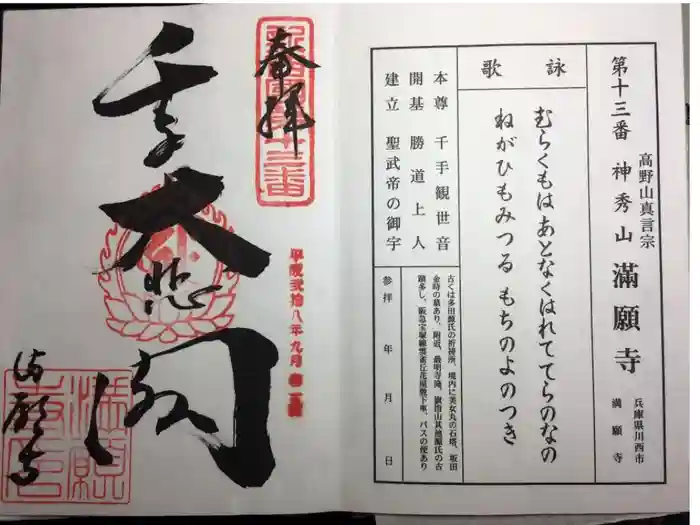 第十三番 神秀山 滿願寺
高野山真言宗
兵庫県川西市
満願寺
詠歌
むらくもは あとなくはれて てらのなの
ねがひもみつる もちのよのつき
本尊 千手観世音
開基 勝道上人
建立 聖武帝の御宇
古くは多田源氏の祈祷所、境内に美女丸の石塔、坂田
金時の墓あり、附近、最明寺滝、嶽治山其他源氏の古
蹟多し、阪急宝塚線雲雀丘花屋敷下車、バスの便あり
参拝 年 月 日
奉拝
第十三番
千手
大悲
閣
満願寺
平成弐拾八年九月